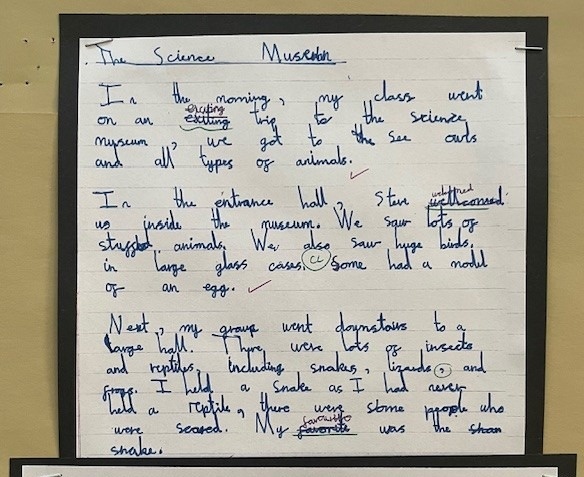 The Science Museum
In the morning, my class went
exciting
on an exciting trip to the science
museum, we got to the see owls
and all types of animals.
In the entrance hall, Steve
welcomed
us inside the museum. We saw lots of
stuffed animals. We also saw huge birds.
in large glass cases. CL Some had a model
of an egg.
Next, my group went downstairs to a
large hall. There were lots of insects
and reptiles, including snakes, lizards, and
frogs. I held a snake as I had never
held a reptile, there were some people who
favourite
were scared. My favorite was the
snake.